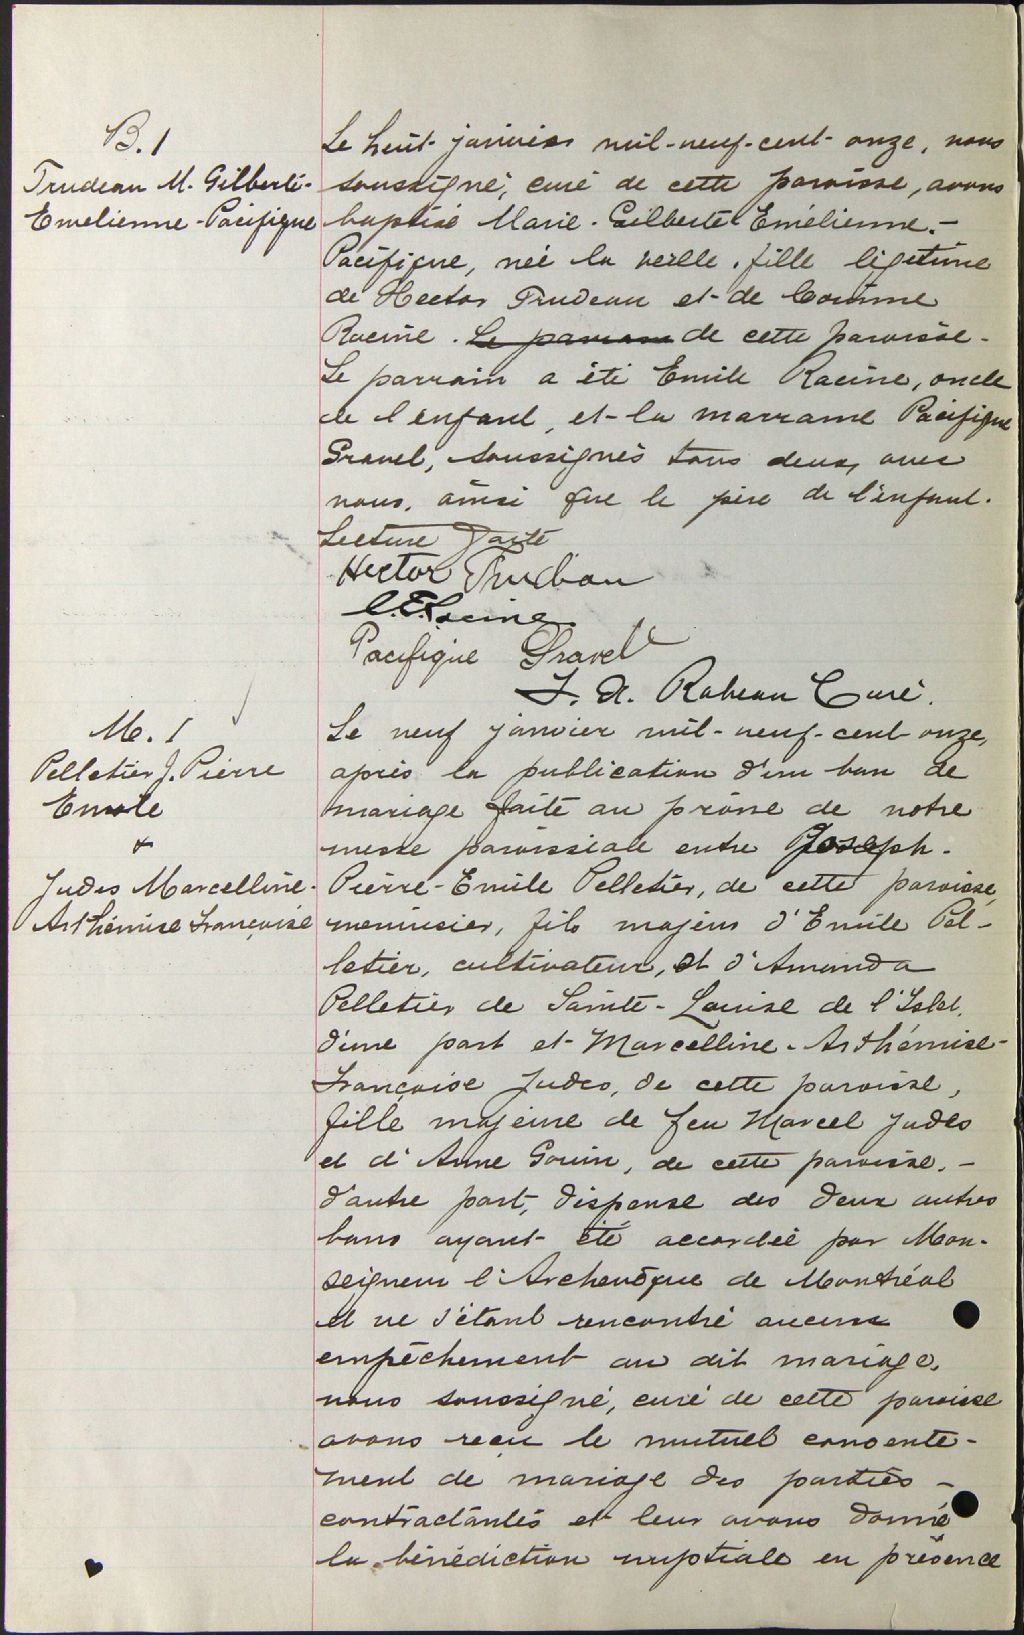 B.1
Trudeau M. Gilberte-
Emelienne-Pacifique
Le huit janvier mil-neuf-cent-onze, nous
soussigné, curé de cette paroisse, avons
baptisé Marie-Gilberte Emélienne.-
Pacifique, née la veille, fille légitime
de Hector Trudeau et de Corinne
Racine. Le parrain de cette paroisse.
Le parrain a été Emile Racine, oncle
de l'enfant, et la marraine Pacifique
Gravel, soussignés tous deux, avec
nous, ainsi que le père de l'enfant.
Lecture faite
Hector Trudeau
C.E. Racine
Pacifique Gravel
J. A. Rabeau Curé.
M. 1
Pelletier J. Pierre
Emile
+
Judes Marcelline-
Arthémise Françoise
Le neuf janvier mil-neuf-cent-onze,
après la publication d'un ban de
mariage faite au prône de notre
messe paroissiale entre Joseph-
Pierre-Emile Pelletier, de cette paroisse,
menuisier, fils majeur d'Emile Pel-
letier, cultivateur, et d'Amanda
Pelletier de Sainte-Louise de l'Islet,
d'une part et Marcelline-Arthémise-
Françoise Judes, de cette paroisse,
fille majeure de feu Marcel Judes
et d'Anne Gouin, de cette paroisse,-
d'autre part, dispense des deux autres
bans ayant été accordée par Mon-
seigneur l'Archevêque de Montréal
et ne s'étant rencontré aucun
empêchement au dit mariage,
nous soussigné, curé de cette paroisse
avons reçu le mutuel consente-
ment de mariage des parties -
contractantes et leur avons donné
la bénédiction nuptiale en présence